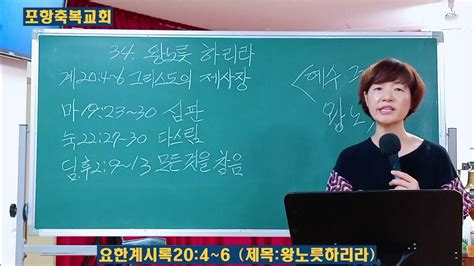 포항축복교회
34. 왕노릇 하리라
계20:4~6 그리스도의 제사장
마19:23~30 심판
눅22:27~30 다스림
딤후2:9~13 모든것을 참음
<예수 그
왕노
요한계시록20:4~6 (제목:왕노릇하리라)